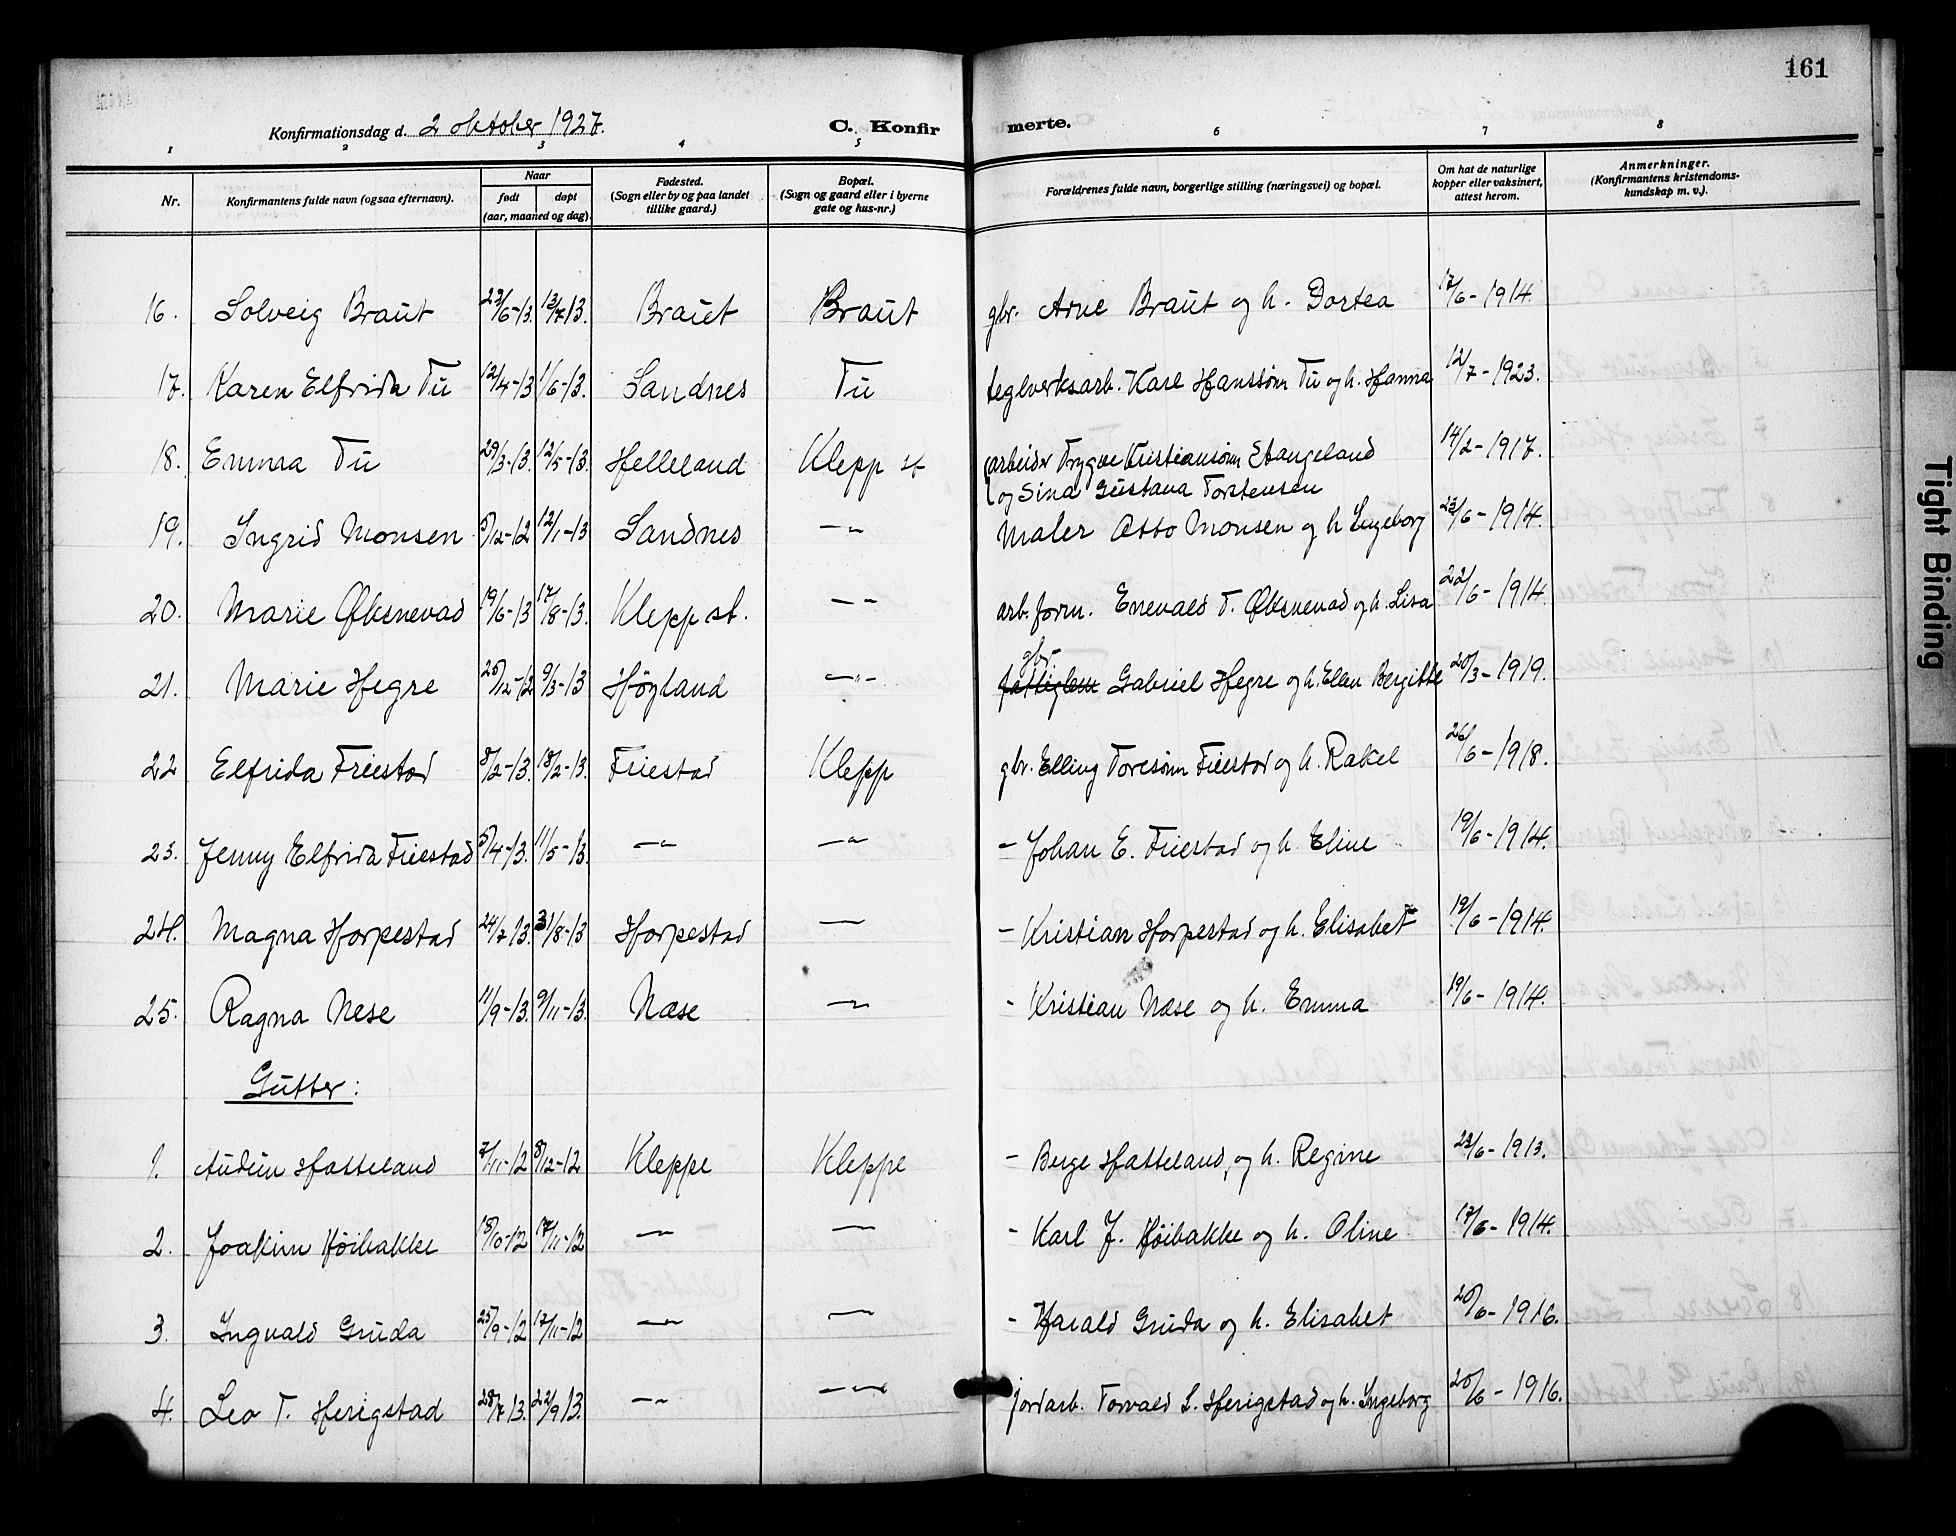 161
Konfirmationsdag d. 2 oktober 1927. C. Konfir merte.
1 2 3 4 5 6 7 8
Nr. Konfirmantens fulde navn (ogsaa efternavn). Naar født døpt (aar, maaned og dag). Fødested. (Sogn eller by og paa landet tillike gaard.) Bopæl. (Sogn og gaard eller i byerne gate og hus-nr.) Forældrenes fulde navn, borgerlige stilling (næringsvei) og bopæl. Om hat de naturlige kopper eller vaksinert, attest herom. Anmerkninger. (Konfirmantens kristendoms-kundskap m. v.).
16. Solveig Braut 23/6-13. 13/7 13. Braut Braut gbr. Arne Braut og h. Dortea 17/6-1914.
17. Karen Elfrida Tu 12/4-13 1/6-13. Sandnes Tu teglverksarb. Karl Hanssønn Tu og h. Hanna 12/7-1923.
18. Emma Tu 29/3-13. 12/5-13. Helleland Klepp st. (arbeider Trygve Kristiansønn Stangeland
og Sina Gustava Torstensen 14/2-1917.
19. Ingrid Monsen 5/12-12 12/1-13 Sandnes -"- Maler Otto Monsen og h Ingeborg 23/6-1914.
20. Marie Øksnevad 19/6-13 17/8-13. Klepp st. -"- arb.form. Enevald T. Øksnevad og h. Lisa 22/6-1914.
21. Marie Hegre 25/12-12 9/3-13 Høyland -"- gbr. Gabriel Hegre og h. Ellen Bergitte 20/3-1919.
22 Elfrida Friestad 8/2-13. 18/2-13. Friestad Klepp gbr. Elling Toresønn Friestad og h. Rakel 26/6-1918.
23. Jenny Elfrida Friestad 5/4-13. 11/5-13. -"- -"- - Johan E. Friestad og h. Eline 19/6-1914.
24. Magna Horpestad 24/7 13. 31/8-13 Horpestad -"- - Kristian Horpestad og h. Elisabet 19/6-1914.
25. Ragna Nese 11/9-13. 9/11-13. Næse -"- - Kristian Næse og h. Emma 19/6-1914.
Gutter:
1. Audun Hatteland 7/11-12 8/12-12 Kleppe Kleppe - Berge Hatteland, og h. Regine 23/6-1913.
2. Joakim Høibakke 18/10-12 17/11-12 -"- -"- - Karl J. Høibakke og h. Oline 17/6-1914.
3. Ingvald Gruda 25/9-12 17/11-12 -"- -"- - Harald Gruda og h. Elisabet 20/6-1916.
4. Leo T. Herigstad 28/7 13. 22/9 13. -"- -"- jordarb. Torvald S. Herigstad og h. Ingeborg 20/6-1916.
Tight Binding